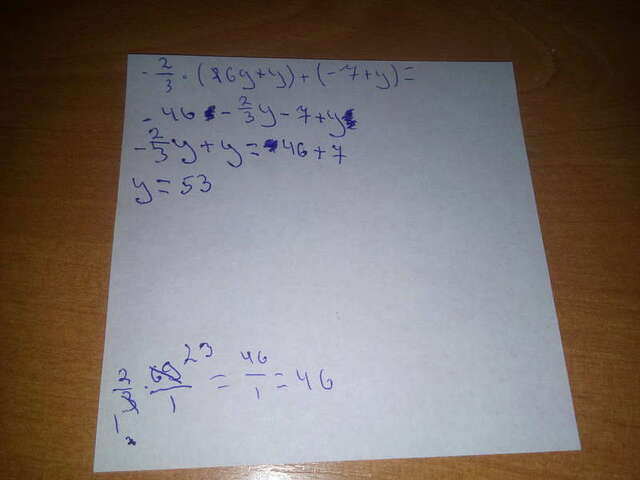 - 2/3 · (69+y) + (-7+y) =
- 46 - 2/3 y - 7 + y
- 2/3 y + y = 46 + 7
y = 53
23
= 46/1 = 46